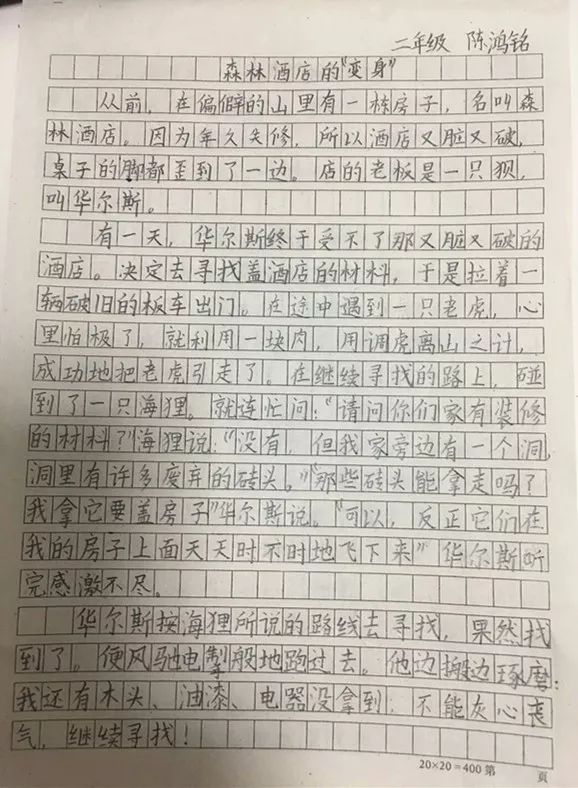 二年级 陈鸿铭
森林酒店的"变身"
从前，在偏僻的山里有一栋房子，名叫森
林酒店。因为年久失修，所以酒店又脏又破，
桌子的脚都歪到了一边。店的老板是一只狈，
叫华尔斯。
有一天，华尔斯终于受不了那又脏又破的
酒店。决定去寻找盖酒店的材料，于是拉着一
辆破旧的板车出门。在途中遇到一只老虎，心
里怕极了，就利用一块肉，用调虎离山之计，
成功地把老虎引走了。在继续寻找的路上，碰
到了一只海狸。就连忙问："请问你们家有装修
的材料？"海狸说："没有，但我家旁边有一个洞，
洞里有许多废弃的砖头。""那些砖头能拿走吗？
我拿它要盖房子"华尔斯说。"可以，反正它们在
我的房子上面天天时不时地飞下来"华尔斯听
完感激不尽。
华尔斯按海狸所说的路线去寻找，果然找
到了。便风驰电掣般地跑过去。他边搬边琢磨：
我还有木头、油漆、电器没拿到，不能灰心丧
气，继续寻找！
20×20=400 第 頁